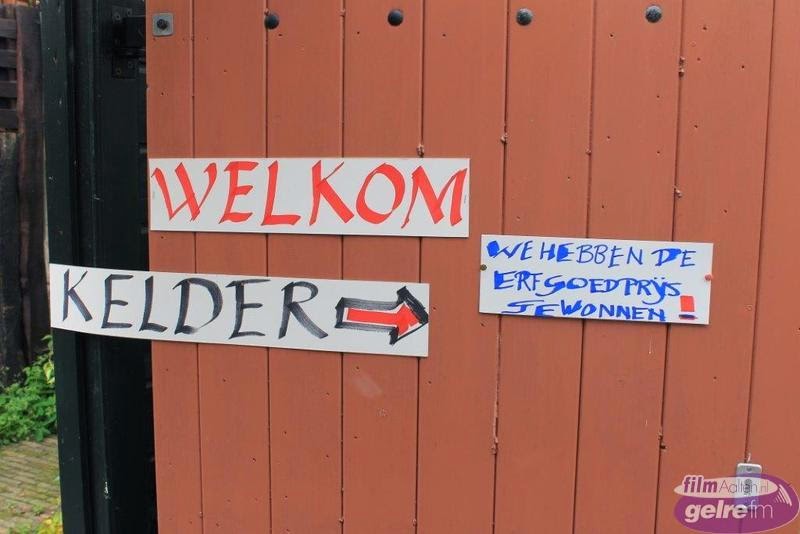 WELKOM
KELDER
WE HEBBEN DE
ERFGOEDPRIJS
GEWONNEN!
filmAalten.nl
gelrefm